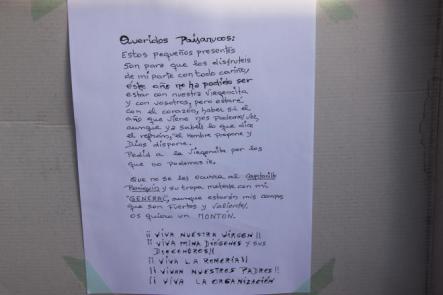 Queridos Paisanucos:
Estos pequeños presentes
son para que los disfruteis
de mi parte con todo cariño,
éste año no ha podido ser
estar con nuestra Virgencita
y con vosotros, pero estaré
con el corazón, haber si el
año que viene nos podemos ver,
aunque ya sabeis lo que dice
el refrán, el hombre propone y
Dios dispone.
Pedid a la Virgencita por los
que no podemos ir.
Que no se les ocurra al Capitán
y su tropa, meterse con mi
"GENERAL", aunque estarán mis
que son fuertes y valientes,
os quiero un MONTÓN.
¡¡ VIVA NUESTRA VIRGEN !!
¡¡ VIVA MINA DIÓGENES Y SUS
!!
¡¡ VIVA LA ROMERÍA !!
¡¡ VIVAN NUESTROS PADRES !!
¡¡ VIVA LA ORGANIZACIÓN